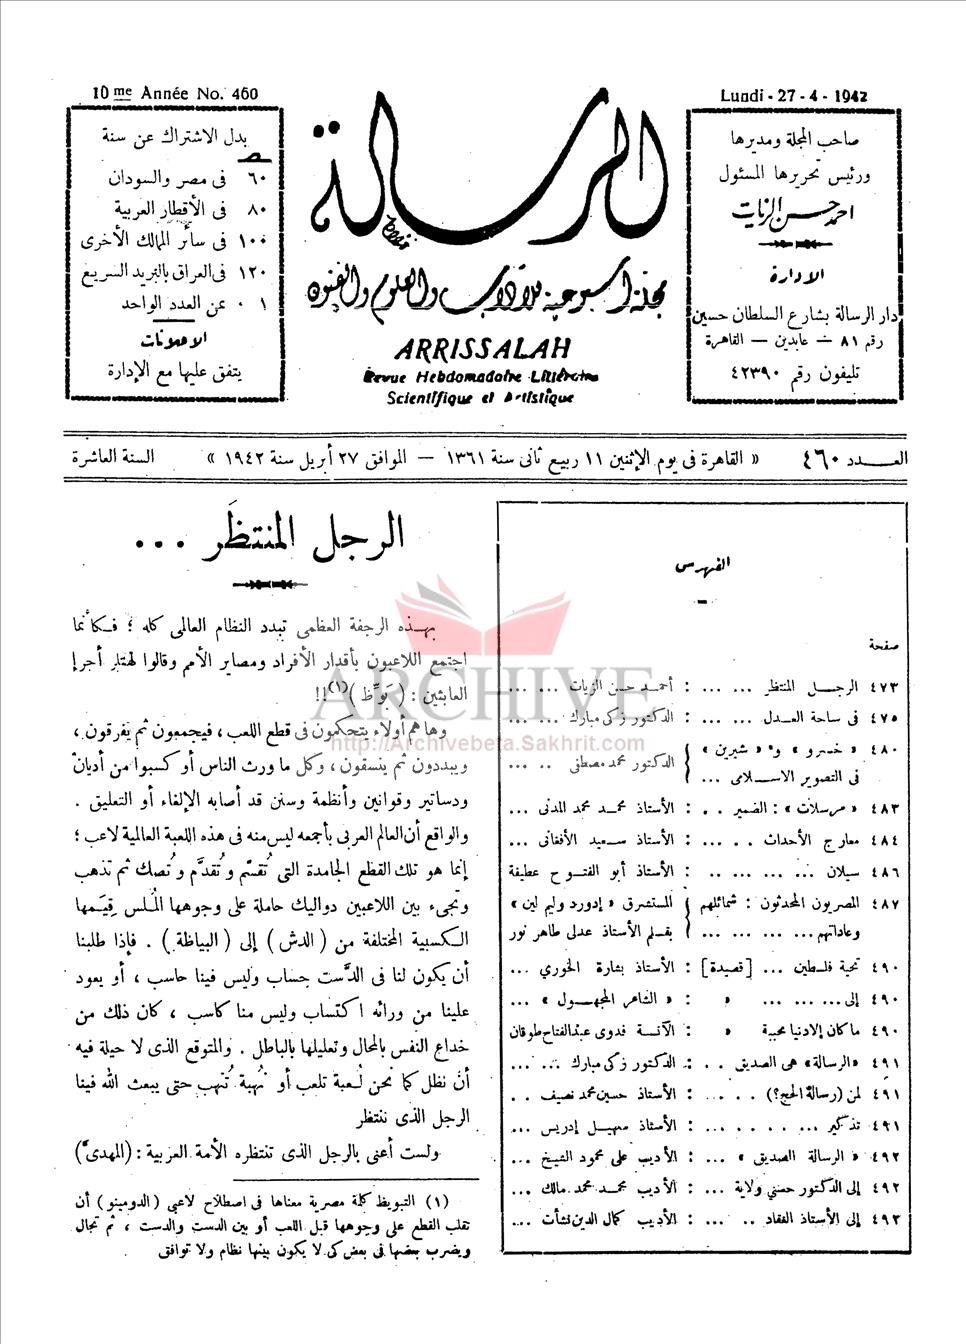 10me Année No. 460
Lundi - 27 - 4 - 1942
صاحب المجلة ومديرها
ورئيس تحريرها المسئول
احمد حسن الزيات
الادارة
دار الرسالة بشارع السلطان حسين
رقم ٨١ — عابدين — القاهرة
تليفون رقم ٤٢٣٩٠
الرسالة
مجلة أسبوعية للآداب والعلوم والفنون
ARRISSALAH
Revue Hebdomadaire Littéraire
Scientifique et Artistique
بدل الاشتراك عن سنة
٦٠ فى مصر والسودان
٨٠ فى الأقطار العربية
١٠٠ فى سائر الممالك الأخرى
١٢٠ فى العراق بالبريد السريع
١ ثمن العدد الواحد
الاعلانات
يتفق عليها مع الإدارة
العـــدد ٤٦٠ « القاهرة فى يوم الإثنين ١١ ربيع ثانى سنة ١٣٦١ — الموافق ٢٧ أبريل سنة ١٩٤٢ » السنة العاشرة
الفهرس
صفحة
٤٧٣ الرجـل المنتظر ... ... : أحمـد حسن الزيات ... ...
٤٧٥ فى ساحة العـدل ... ... : الدكتور زكى مبارك ... ...
٤٨٠ « خسرو » و « شيرين » فى التصوير الاسـلامى ... : الدكتور محمد مصطفى ... ...
٤٨٣ « مرسلات » : الضمير . . : الأستاذ محمـد محمد المدنى ...
٤٨٤ معارج الأحداث . . ... : الأستاذ سـعيد الأفغانى ...
٤٨٦ سيلان ... ... ... .. : الأستاذ أبو الفتـوح عطيفة
٤٨٧ المصريون المحدثون : شمائلهم وعاداتهم... ... ... ... : المستشرق « إدورد وليم لين » بقـلم الأستاذ عدلى طاهر نور
٤٩٠ تحية فلسطين ... [قصيدة] : الأستاذ بشارة الخورى ...
٤٩٠ إلى... ... ... « : « الشاعر المجهـول » ...
٤٩٠ ما كان إلا دنيا محببة « : الآنسة فدوى عبدالفتاح طوقان
٤٩١ «الرسالة» هى الصديق . . : الدكتور زكى مبارك ... ...
٤٩١ لمن (رسالة الحج؟) . ... : الأستاذ حسين محمد نصيف . .
٤٩١ تذكير ... ... . . ... : الأستاذ سهيـل إدريس ...
٤٩٢ « الرسالة الصديق » ... : الأديب على محمود الشيخ ...
٤٩٢ إلى الدكتور حسنى ولاية ... : الأديب محمـد محمد مالك ...
٤٩٣ إلى الأستاذ العقاد .. ... : الأديب كمال الدين نشأت ...
الرجل المنتظَر ...
بهـذه الرجفة العظمى تبدد النظام العالمى كله ؛ فـكأنما
اجتمع اللاعبون بأقدار الأفراد ومصاير الأمم وقالوا لهتلر أجرإ
العابثين : ( بَوِّظ )(١)!!
وها هم أولاء يتحكمون فى قطع اللعب ، فيجمعون ثم يفرقون ،
ويبددون ثم ينسقون ، وكل ما ورث الناس أو كسبوا من أديان
ودساتير وقوانين وأنظمة وسنن قد أصابه الإلغاء أو التعليق .
والواقع أن العالم العربى بأجمعه ليس منه فى هذه اللعبة العالمية لاعب ؛
إنما هو تلك القطع الجامدة التى تُقسّم وتُقدَّم وتُصك ثم تذهب
وتجىء بين اللاعبين دواليك حاملة على وجوهها المُلس قِيَمها
الـكسبية المختلفة من ( الدش ) إلى ( البياظة ) . فإذا طلبنا
أن يكون لنا فى الدَّست حساب وليس فينا حاسب ، أو يعود
علينا من ورائه اكتساب وليس منا كاسب ، كان ذلك من
خداع النفس بالمحال وتعليلها بالباطل . والمتوقع الذى لا حيلة فيه
أن نظل كما نحن لُعبة تلعب أو نُهبة تُنهب حتى يبعث الله فينا
الرجل الذى ننتظر
ولست أعنى بالرجل الذى تنتظره الأمة العربية : (المهدى)
(١) التبويظ كلمة مصرية معناها فى اصطلاح لاعبى (الدومينو) أن
تقلب القطع على وجوهها قبل اللعب أو بين الدست والدست ، ثم تجال
ويضرب بعضها فى بعض كى لا يكون بينها نظام ولا توافق
ARCHIVE
http://Archivebeta.Sakhrit.com